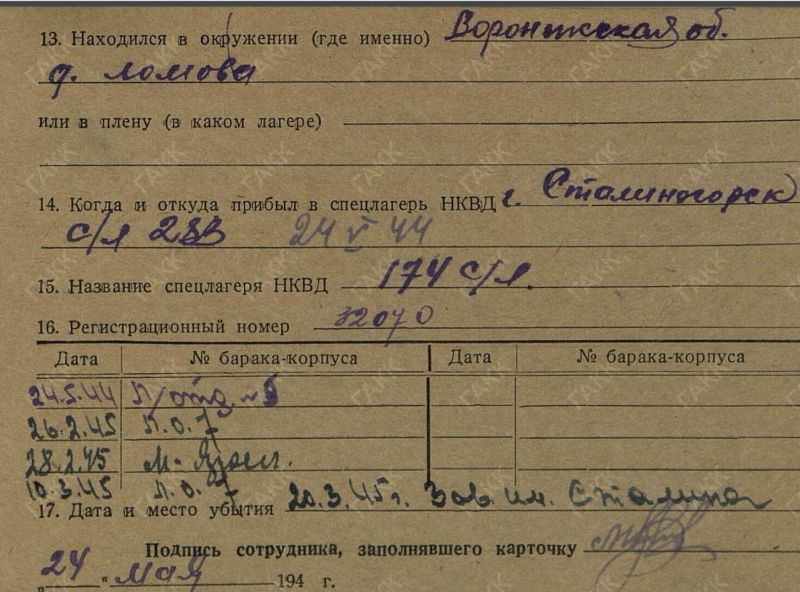 13. Находился в окружении (где именно) Воронжская об.
д. Ломова
или в плену (в каком лагере)
14. Когда и откуда прибыл в спецлагерь НКВД г. Сталиногорск
с/л 283 24 V 44
15. Название спецлагеря НКВД 174 с/л.
16. Регистрационный номер 32070
Дата № барака-корпуса Дата № барака-корпуса
24.5.44 Л/отд. № 5
26.2.45 Л.О. 7
28.2.45
10.3.45 Л.О. 7
17. Дата и место убытия 20.3.45 г. Зав. им. Сталина
Подпись сотрудника, заполнявшего карточку
„24" мая 194 г.